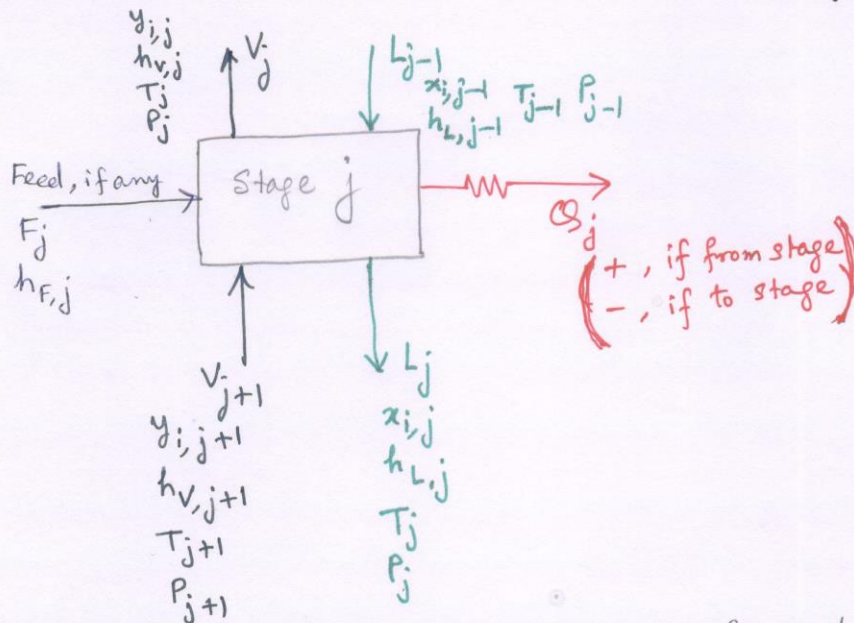 y_{i,j}
h_{V,j}
T_j
P_j
V_j
L_{j-1}
x_{i,j-1} T_{j-1} P_{j-1}
h_{L,j-1}
Feed, if any
F_j
h_{F,j}
Stage j
Q_j
(+, if from stage
-, if to stage)
V_{j+1}
y_{i,j+1}
h_{V,j+1}
T_{j+1}
P_{j+1}
L_j
x_{i,j}
h_{L,j}
T_j
P_j